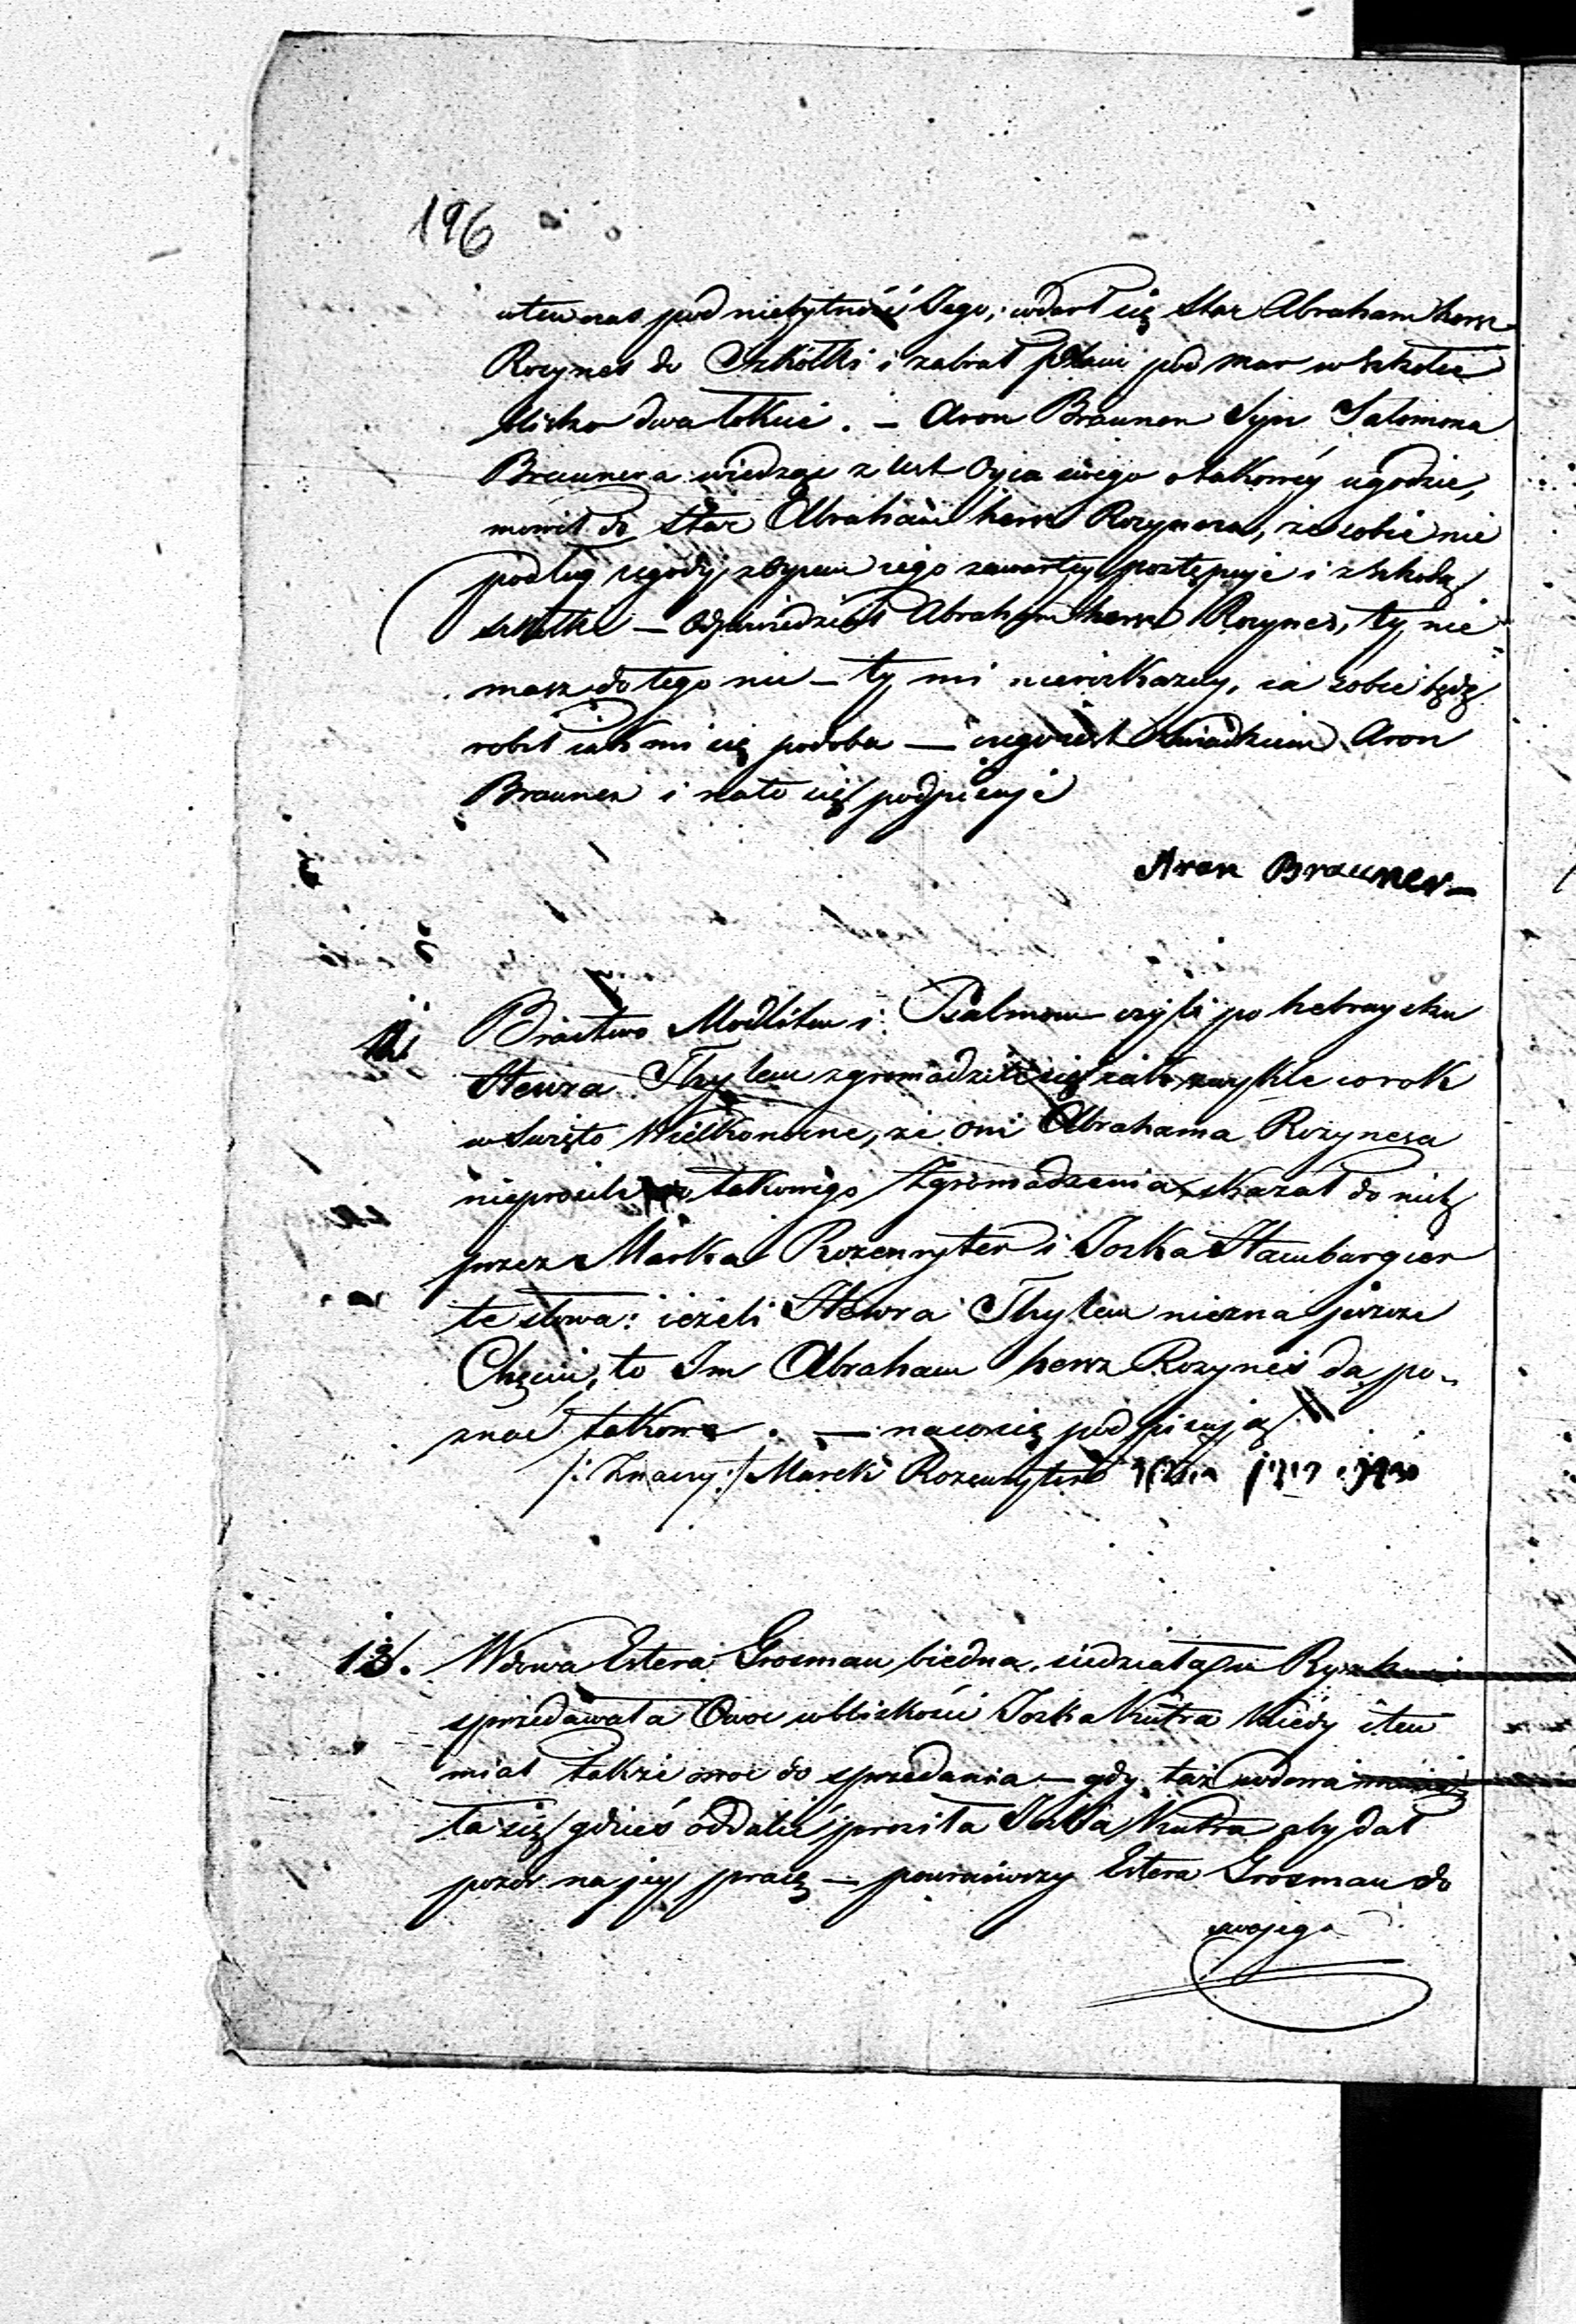 196
wtenczas pod niebytność Jego, wdarł się Star Abraham hersz
Rozynes do Szkółki i zabrał pod mur w Szkółce
blisko dwa łokcie. – Aron Brauner Syn Salomona
Braunera wiedząc z ust Oyca swego o takowéy ugodzie,
mowił do Star Abraham hersz Rozynesa, że sobie nie
podług ugody z Oycem iego zawartey postępuje i z szkodą
szkółki – Odpowiedział Abraham hersz Rozynes, ty nie
masz do tego nic – ty mi nie rozkazuy, ia sobie będę
robił iak mi się podoba — czego iest świadkiem Aron
Brauner i na to się podpisuje
Aron Brauner –
12. Bractwo Modlitew i Psalmow czyli po hebraysku
Hewra Thylem zgromadzili się iak zwykle corok
w Swięto Wielkonocne, że oni Abrahama Rozynesa
nieprosili do takowego Zgromadzenia, skazał do nich
przez Marka Rozenryter i Joska Hamburgier
te słowa: ieżeli Hewra Thylem niezna jeszcze
Chęcin, to Im Abraham hersz Rozynes da po-
znać takowe. — na co się podpisują
/: Znaczy :/ Marek Rozenryter
13. Wdowa Estera Grosman biedna, siedziała w Rynku i
sprzedawała Owoc w bliskości Joska Kutra kiedy i ten
miał także owoc do sprzedania – gdy taż wdowa mia
ła się gdzieś oddalić prosiła Joska Kutra aby dał
pozór na jey pracę – powróciwszy Estera Grosman do
swojego